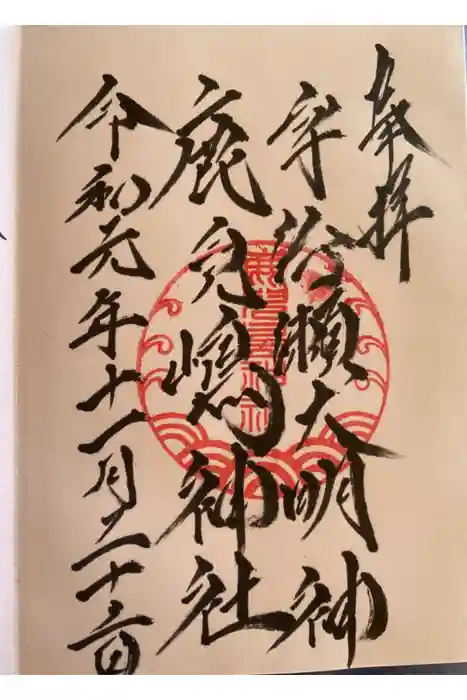 奉拝
宇治瀬大明神
鹿児嶋神社
令和元年十一月二十六日